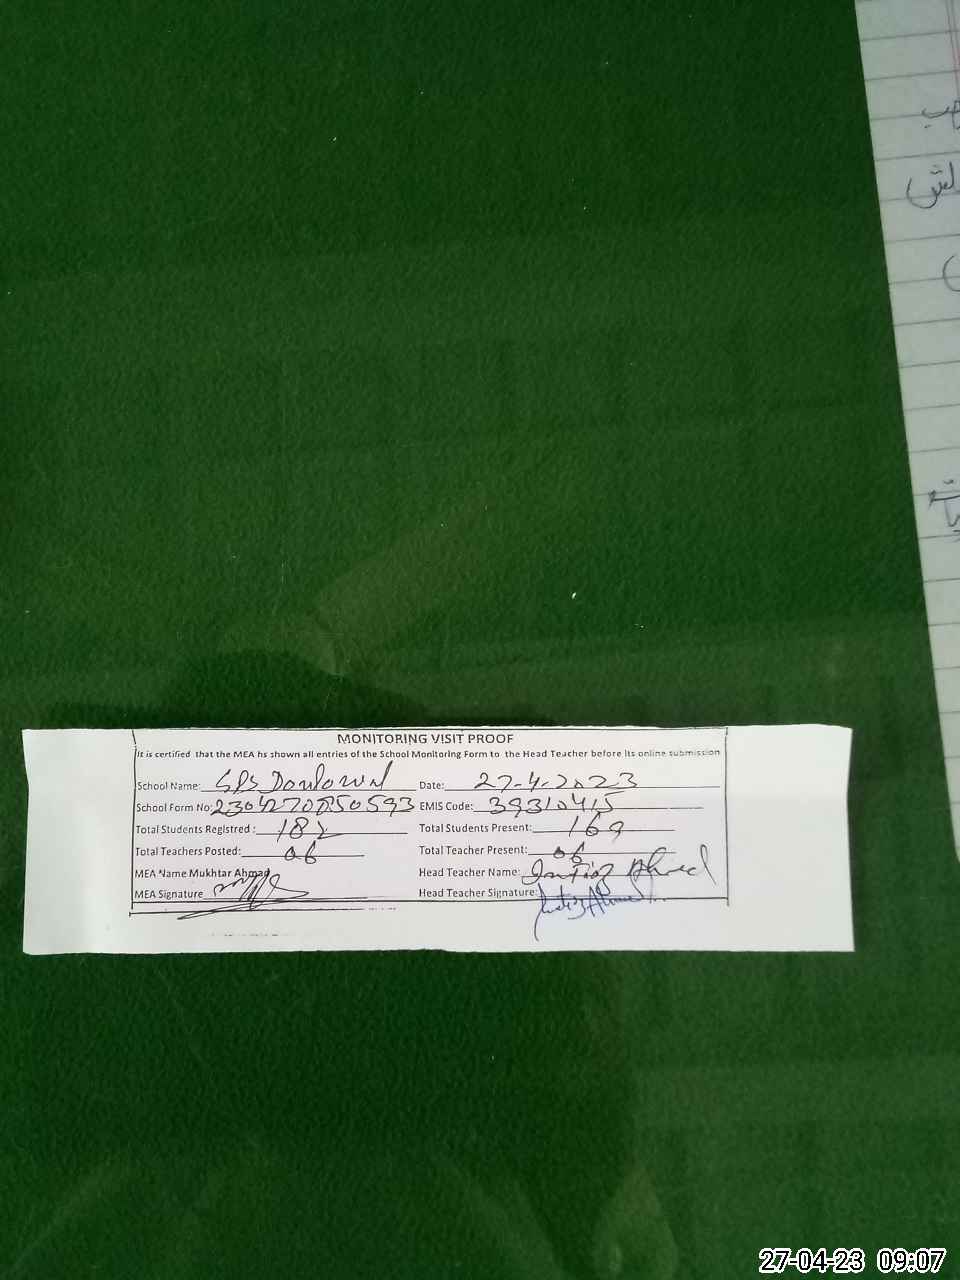 MONITORING VISIT PROOF
It is certified that the MEA hs shown all entries of the School Monitoring Form to the Head Teacher before its online submission
School Name: GPS Date: 27-4-2023
School Form No: 2304270850593 EMIS Code: 39310415
Total Students Registred : 182 Total Students Present: 169
Total Teachers Posted: 06 Total Teacher Present: 06
MEA Name Mukhtar Ahmad Head Teacher Name: Imtiaz Ahmed
MEA Signature Head Teacher Signature: Imtiaz Ahmed
27-04-23 09:07